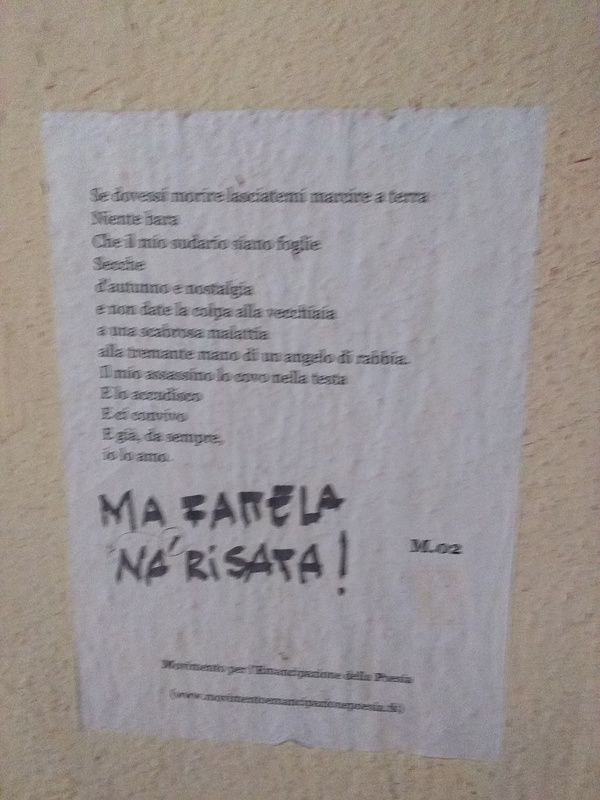 Se dovessi morire lasciatemi marcire a terra
Niente bara
Che il mio sudario siano foglie
Secche
d'autunno e nostalgia
e non date la colpa alla vecchiaia
a una scabrosa malattia
alla tremante mano di un angelo di rabbia.
Il mio assassino lo covo nella testa
E lo accudisco
E ci convivo
E già, da sempre,
io lo amo.
MA FATTELA
NA' RISATA!
M.02
Movimento per l'Emancipazione della Poesia
(www.movimentoemancipazionepoesia.tk)